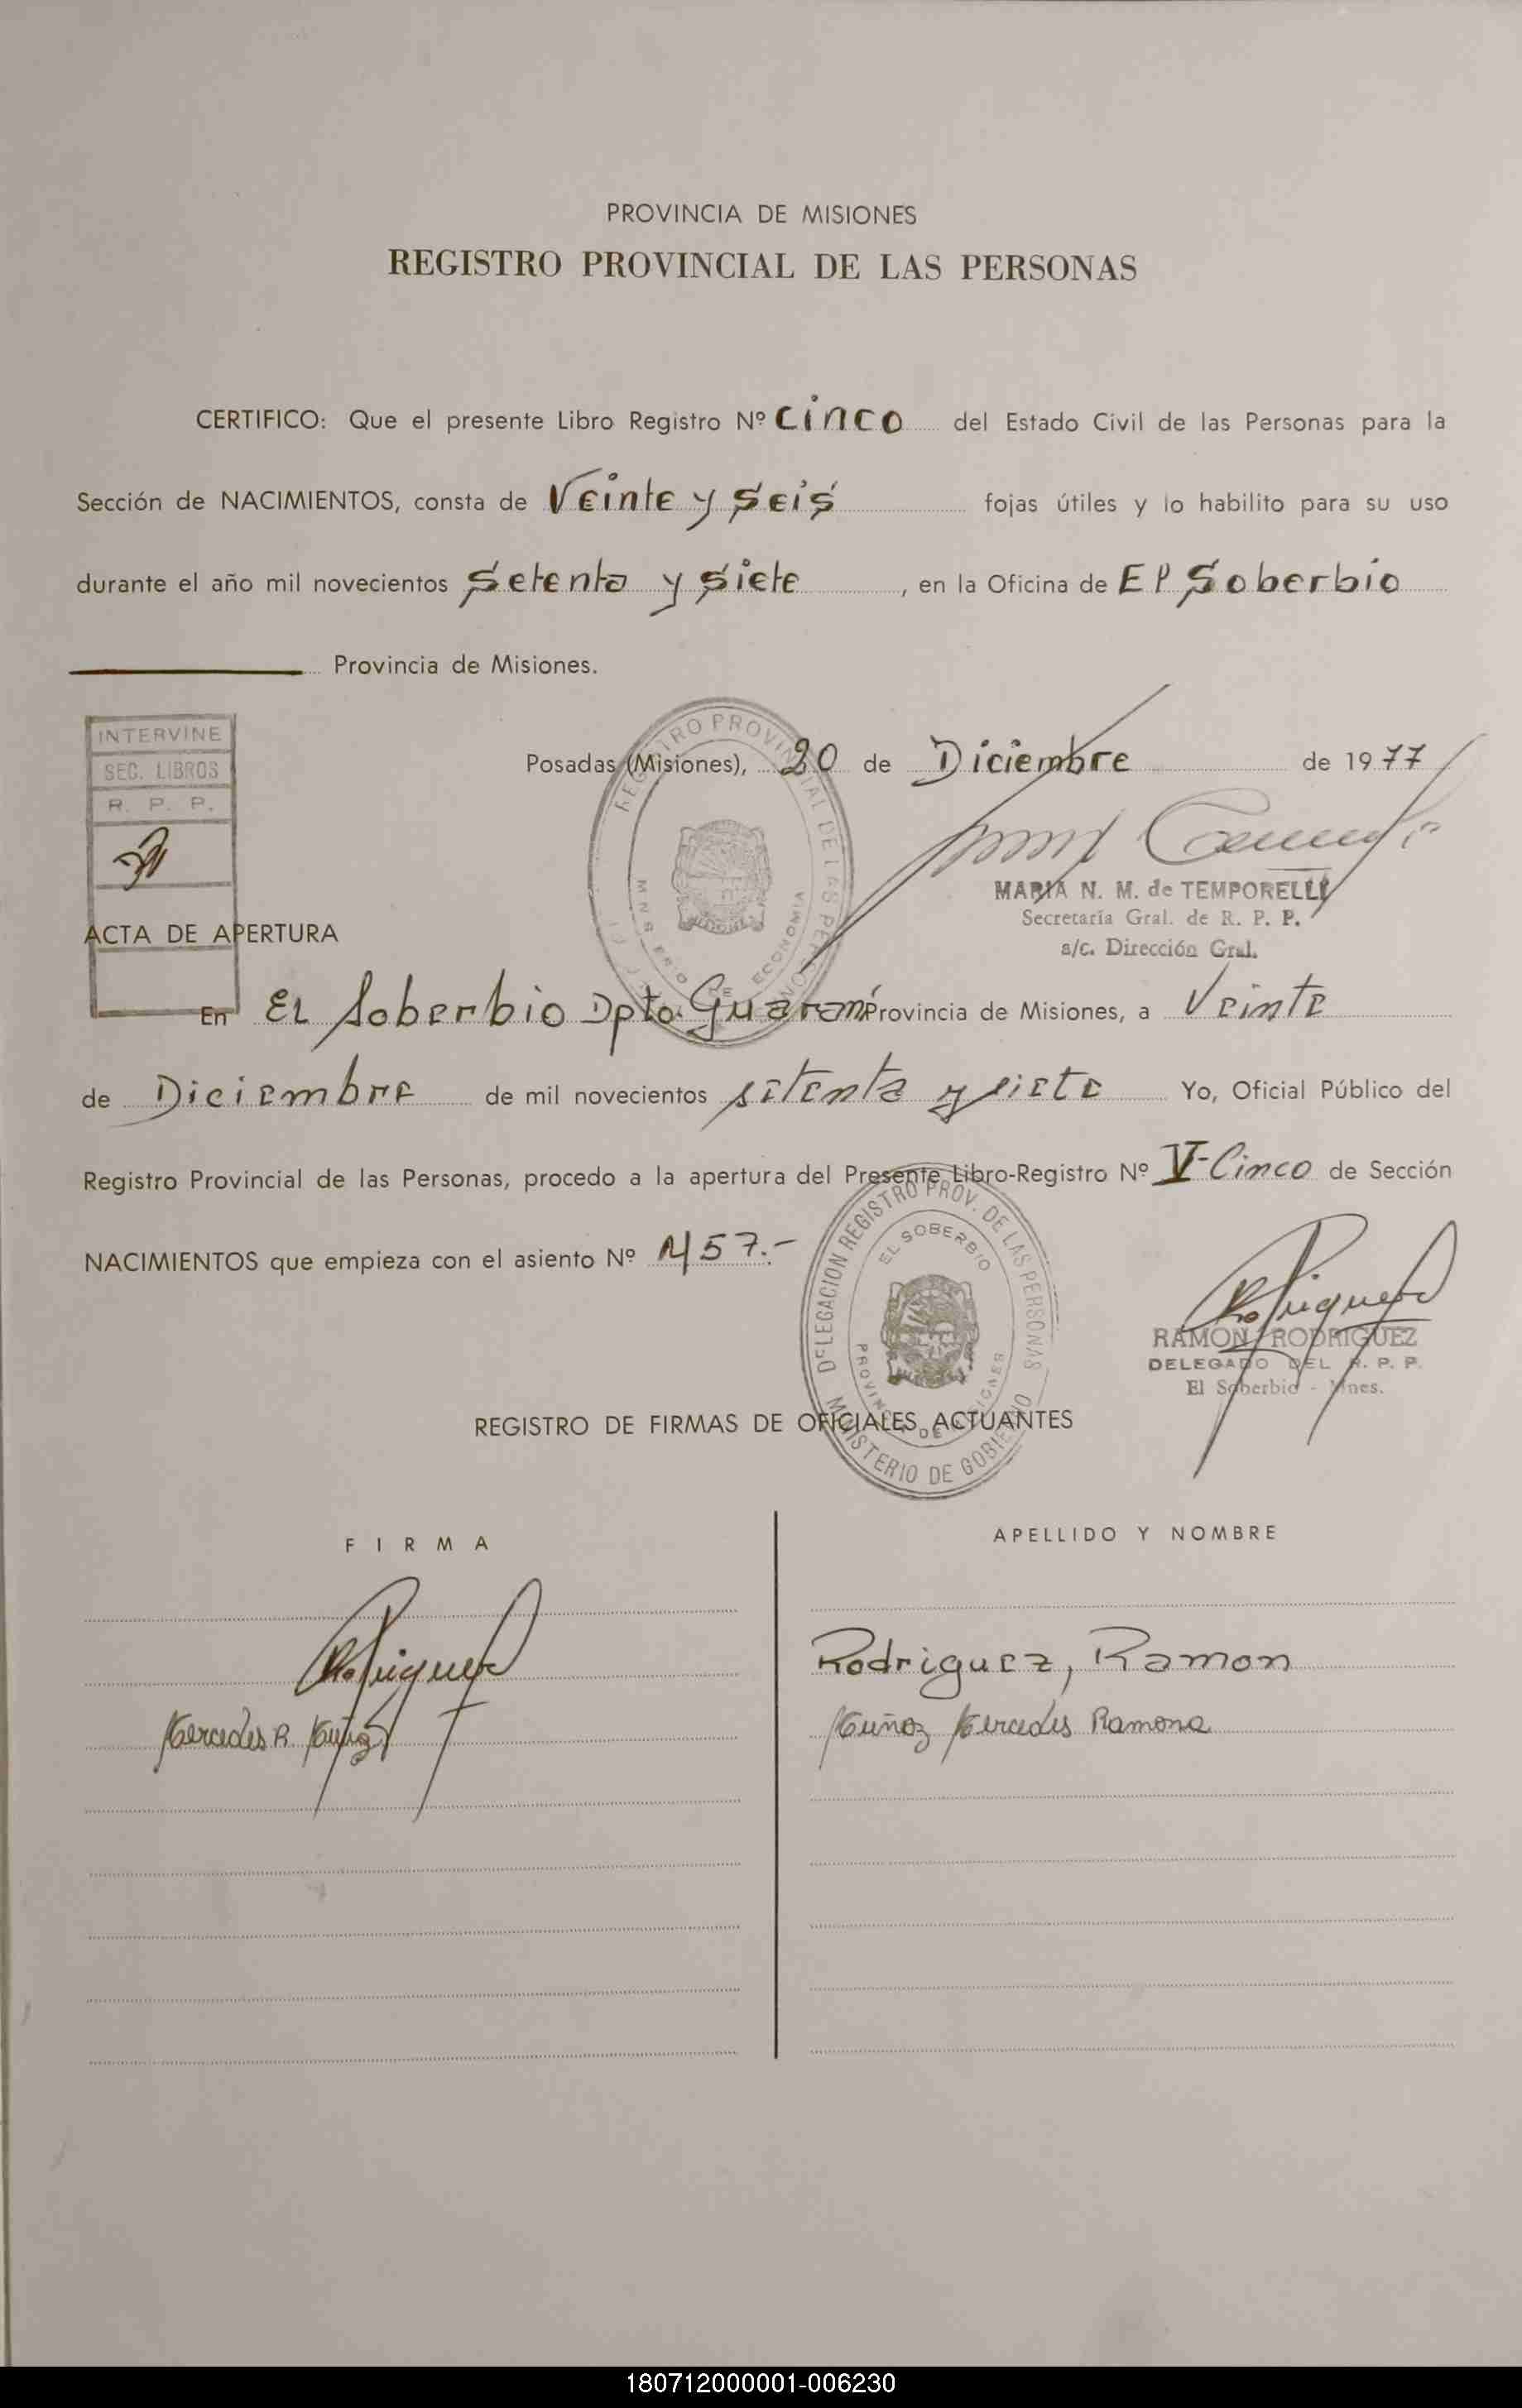 PROVINCIA DE MISIONES
REGISTRO PROVINCIAL DE LAS PERSONAS
CERTIFICO: Que el presente Libro Registro Nº cinco del Estado Civil de las Personas para la
Sección de NACIMIENTOS, consta de Veinte y seis fojas útiles y lo habilito para su uso
durante el año mil novecientos setenta y siete, en la Oficina de El Soberbio
Provincia de Misiones.
INTERVINE
SEC. LIBROS
R. P. P.
Posadas (Misiones), 20 de Diciembre de 1977
REGISTRO PROVINCIAL DE LAS PERSONAS
ECONOMIA
MARIA N. M. de TEMPORELLI
Secretaría Gral. de R. P. P.
a/c. Dirección Gral.
ACTA DE APERTURA
En EL Soberbio Dpto. Guaraní Provincia de Misiones, a Veinte
de Diciembre de mil novecientos setenta y siete Yo, Oficial Público del
Registro Provincial de las Personas, procedo a la apertura del Presente Libro-Registro Nº V-Cinco de Sección
NACIMIENTOS que empieza con el asiento Nº 457.-
DELEGACION REGISTRO PROV. DE LAS PERSONAS
EL SOBERBIO
PROVINCIA DE MISIONES
MINISTERIO DE GOBIERNO
RAMON RODRIGUEZ
DELEGADO DEL R. P. P.
El Soberbio - Mnes.
REGISTRO DE FIRMAS DE OFICIALES ACTUANTES
FIRMA
APELLIDO Y NOMBRE
Rodriguez
Rodriguez, Ramon
Mercedes R. Muñoz
Muñoz Mercedes Ramona
180712000001-006230